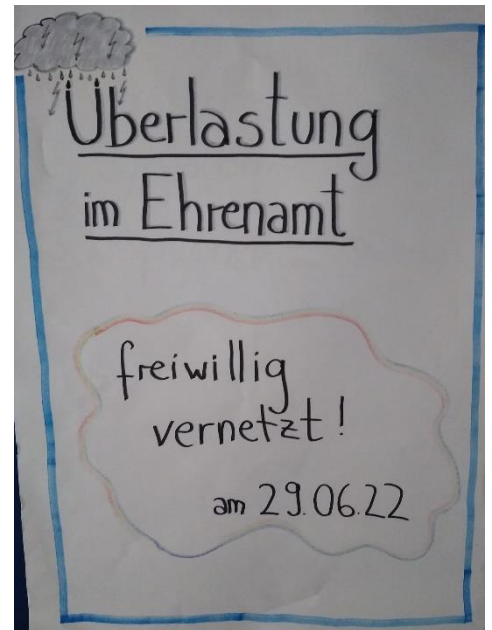 Überlastung
im Ehrenamt
freiwillig
vernetzt!
am 29.06.22